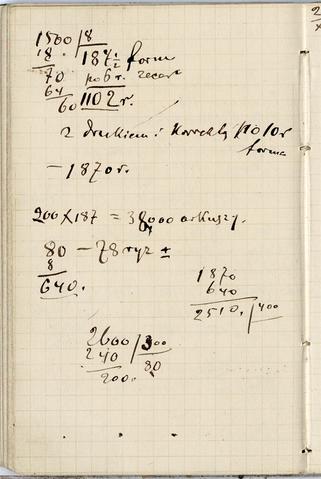 1500/8
18. 187½ form
70 po 6 r. zecer
64
60 1102 r.
z drukiem i korrektą 10 r
forma
— 1870 r.
200 x 187 = 38,000 arkuszy.
80 — 78 ryz ±
8
640.
1870
640
2510. /400
2600/300
240 80
200.